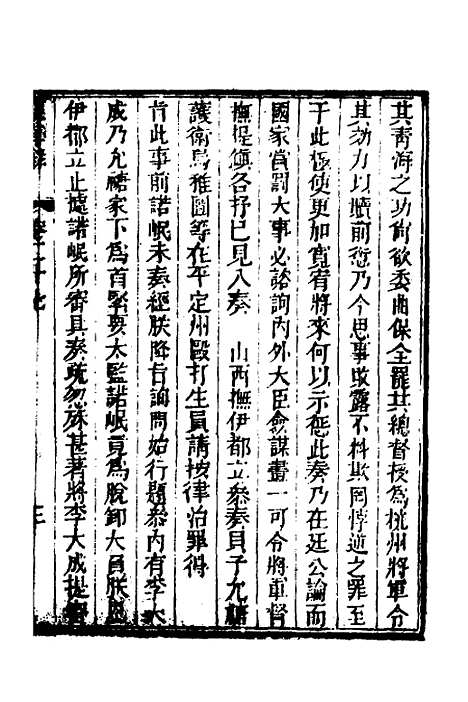 其青海之功尙欲委曲保全罷其總督授為杭州將軍令
其効力以贖前愆乃今思事敗露不料欺罔悖逆之罪至
于此極使更加寬宥將來何以示懲此奏乃在廷公論而
國家當罰大事必諮詢內外大臣僉謀畫一可令將軍督
撫提鎮各抒已見入奏　山西撫伊都立叅奏貝子允禟
護衛烏稚圖等在平定州毆打生員請按律治罪得
旨此事前諾岷未奏經朕降旨詢問始行題叅內有李大
成乃允禟家下為首緊要太監諾岷竟為脫卸大負朕恩
伊都立止據諾岷所審具奏疏忽殊甚著將李大成提
卷二十七
三